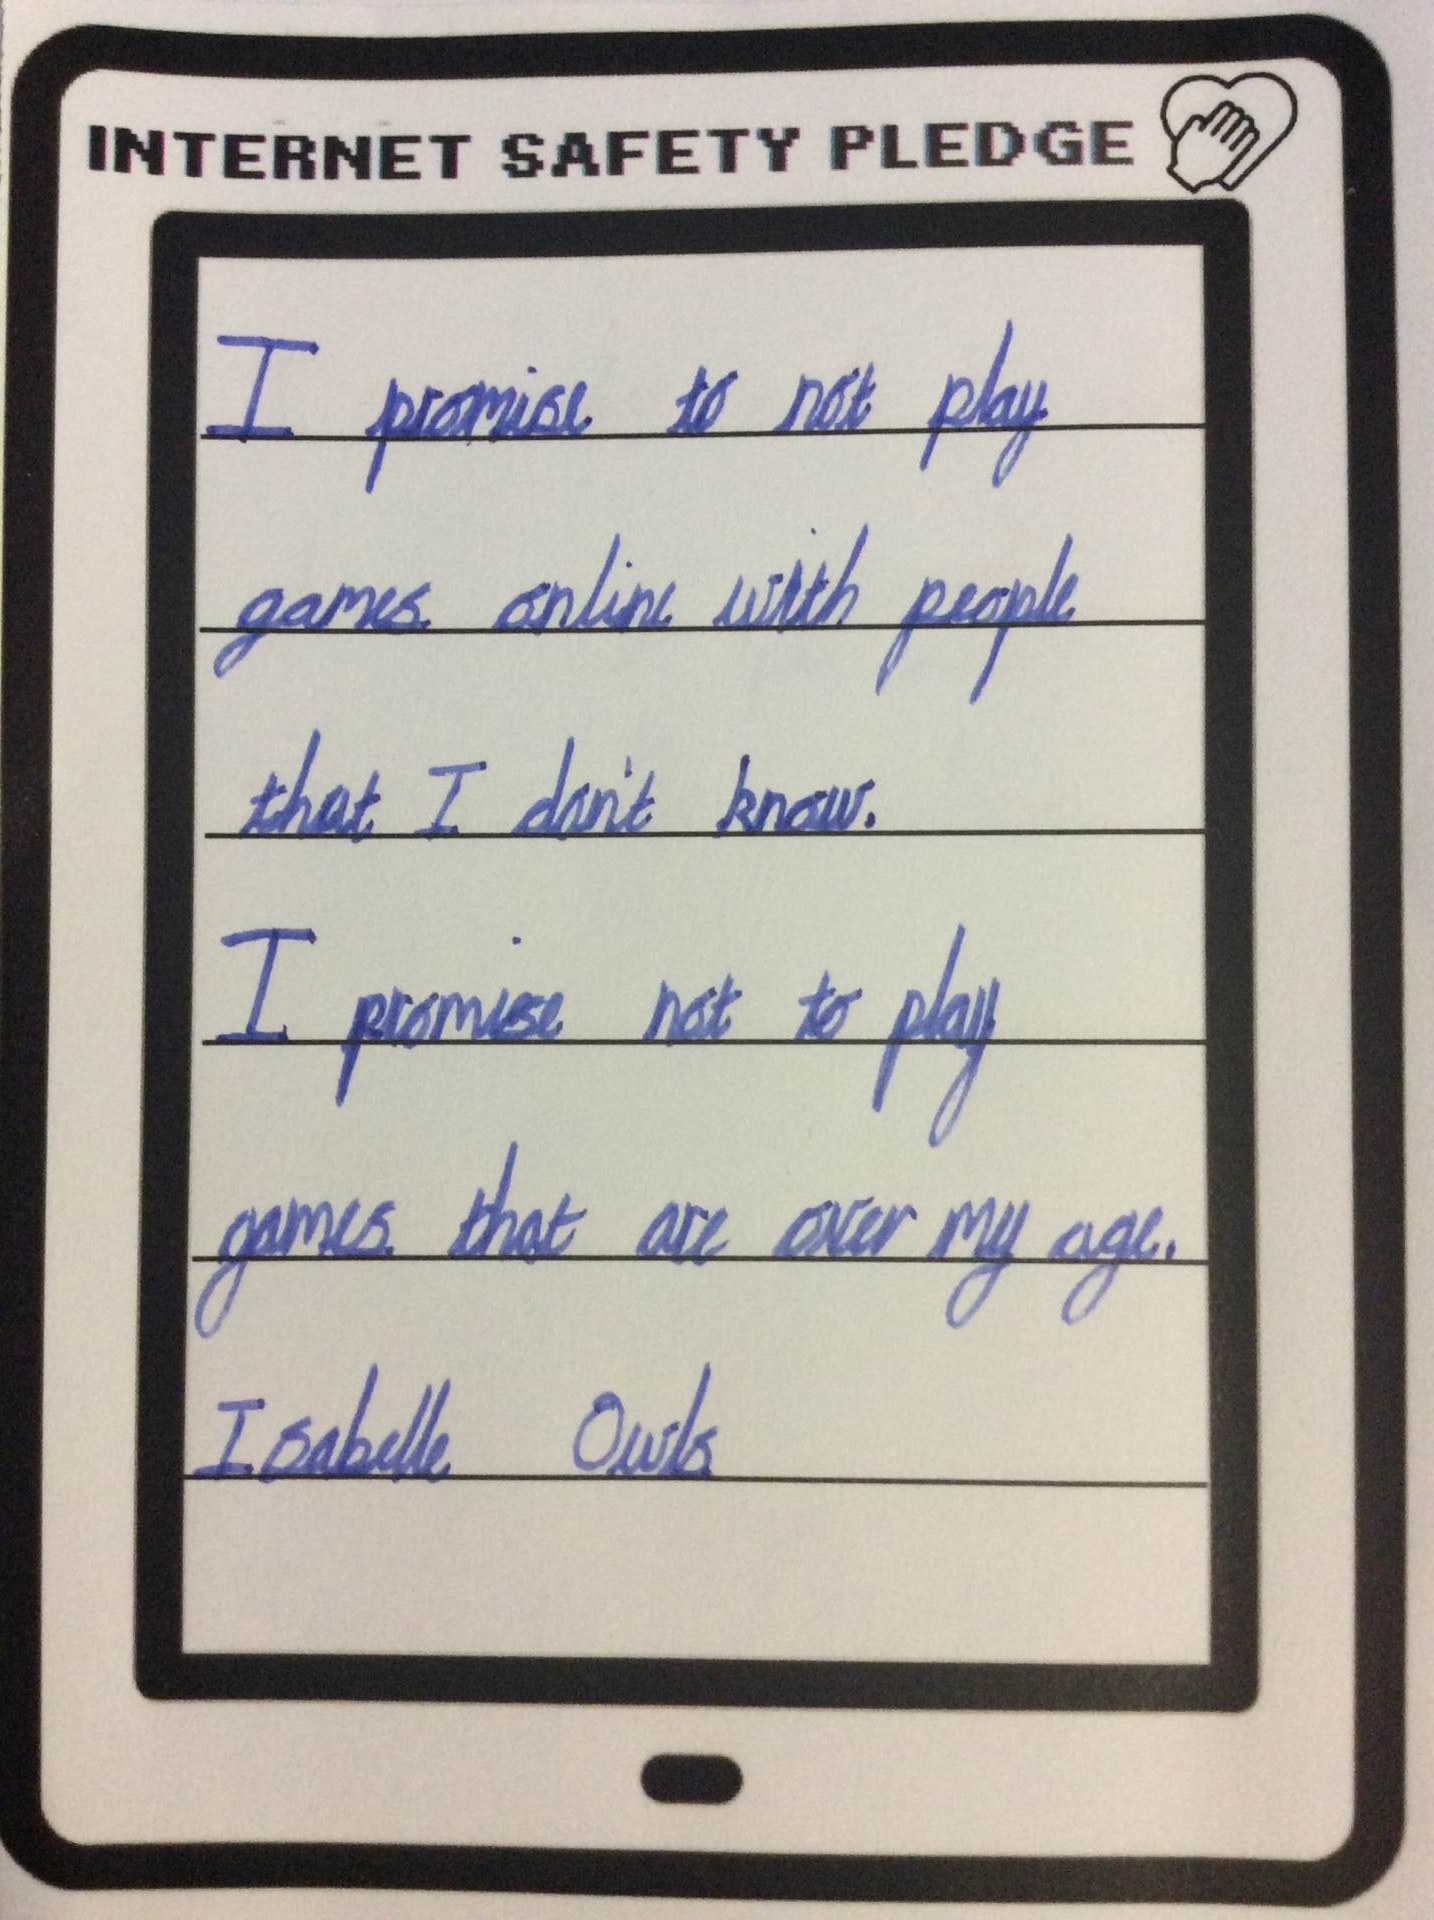 INTERNET SAFETY PLEDGE
I promise to not play
games online with people
that I don't know.
I promise not to play
games that are over my age.
Isabelle Owls